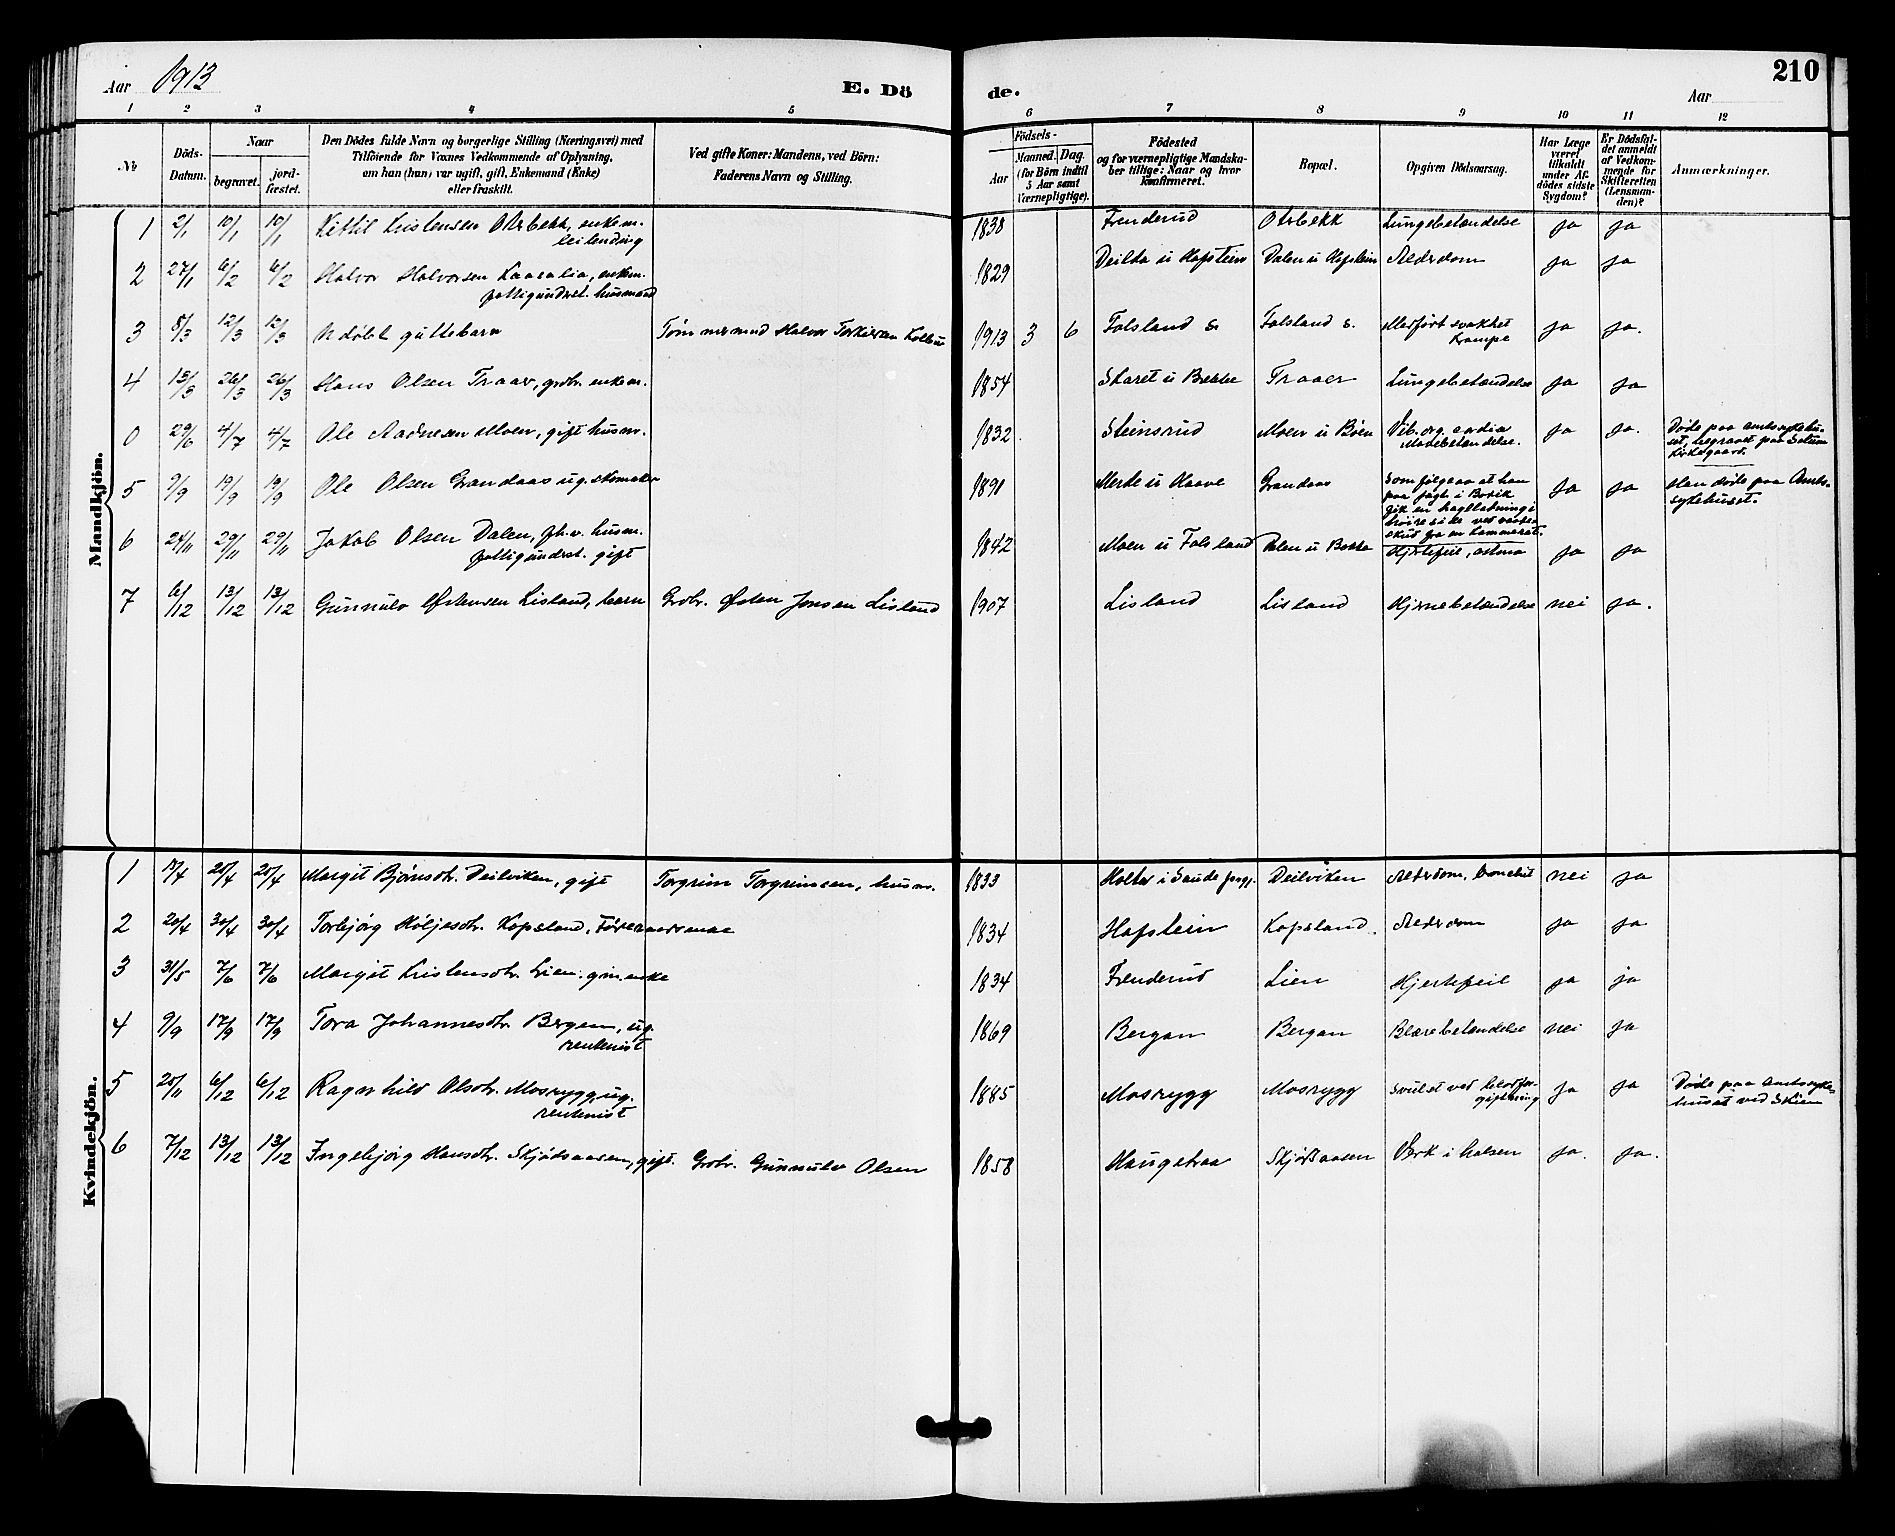 Aar 1913 E. Dö de. Aar 210
1 2 3 4 5 6 7 8 9 10 11 12
No
Döds-Datum.
Naar begravet. jordfæstet.
Den Dödes fulde Navn og borgerlige Stilling (Næringsvei) med
Tilföiende for Voxnes Vedkommende af Oplysning,
om han (hun) var ugift, gift, Enkemand (Enke)
eller fraskilt.
Ved gifte Koner: Mandens, ved Börn:
Faderens Navn og Stilling.
Födsels-
Aar Maaned. Dag.
(for Börn indtil
5 Aar samt
Værnepligtige).
Födested
og for værnepligtige Mandska-
ber tillige: Naar og hvor
Konfirmeret.
Bopæl.
Opgiven Dödsaarsag.
Har Læge
været
tilkaldt
under Af-
dödes sidste
Sygdom?
Er Dödsfal-
det anmeldt
af Vedkom-
mende for
Skifteretten
(Lensman-
den)?
Anmærkninger.
Mandkjön.
1 2/1 10/1 10/1 Kittil Kristensen Oterbekk, enkem. 1838 Frenderud Oterbekk Lungebetændelse ja ja
leilending
2 27/1 6/2 6/2 Halvor Halvorsen Kaasalia, enkem. 1829 Deilda u Hofstein Dalen u Hofstein Alderdom ja ja
fattigunderst. husmand
3 8/3 12/3 12/3 Udøbt guttebarn Tømmermand Halvor Torkilsen 1913 3 6 Folsland s. Folsland s. Medført svakhet ja ja.
Krampe
4 13/3 26/3 26/3 Hans Olsen Traaer, grbr. enkem. 1854 Skaret u Bekke Traaer Lungebetændelse ja ja
0 29/6 4/7 4/7 Ole Aadnesen Moen, gift husm. 1832 Steinsrud Moen u Bøen Vit. org. cordia ja ja. Døde paa amtssykehu-
set, begravet paa Solum
kirkegaard.
5 9/9 19/9 19/9 Ole Olsen Grandaas ug. skomaker 1891 Grandaas Som følge av at han ja ja Han døde paa Amts-
paa jagt i sykehuset.
gik en haglladning i
høire side ved vaade-
skud fra en kammerat.
6 24/11 29/11 29/11 Jakob Olsen Dalen, fh.v. husm. 1842 Moen u Folsland Dalen u Bekke Hjertefeil, astma ja ja
fattigunderst. gift
7 6/12 13/12 13/12 Gunnulv Østensen Lisland, barn Grbr. Østen Jonsen Lisland 1907 Lisland Lisland Hjernebetændelse nei ja.
Kvindekjön.
1 25/4 25/4 Margit Bjørnsdtr. Deilviken, gift Torgrim Torgrimsen, husm. 1833 Holter i Saude prgj. Deilviken Alderdom, nei ja
2 20/4 30/4 30/4 Torbjørg Høljesdtr. Kopsland, 1834 Hofstein Kopsland. Alderdom ja ja
3 31/5 7/6 7/6 Margit Kristensdtr. Lien. enke 1834 Frenderud Lien Hjertefeil ja ja
4 9/9 17/9 17/9 Tora Johannesdtr. Bergan, ug. 1869 Bergan Bergan Blærebetændelse nei ja
rentenist
5 25/11 6/12 6/12 Ragnhild Olsdtr. Mosrygg, ug. 1885 Mosrygg Mosrygg Svulst ved blodfor- ja ja Døde paa amtssyke-
rentenist giftning huset ved Skien
6 7/12 13/12 13/12 Ingebjørg Hansdtr. Skjødsaasen, gift. Grbr. Gunnulv Olsen 1858 Haugetraa Skjødsaasen Værk i halsen ja. ja.